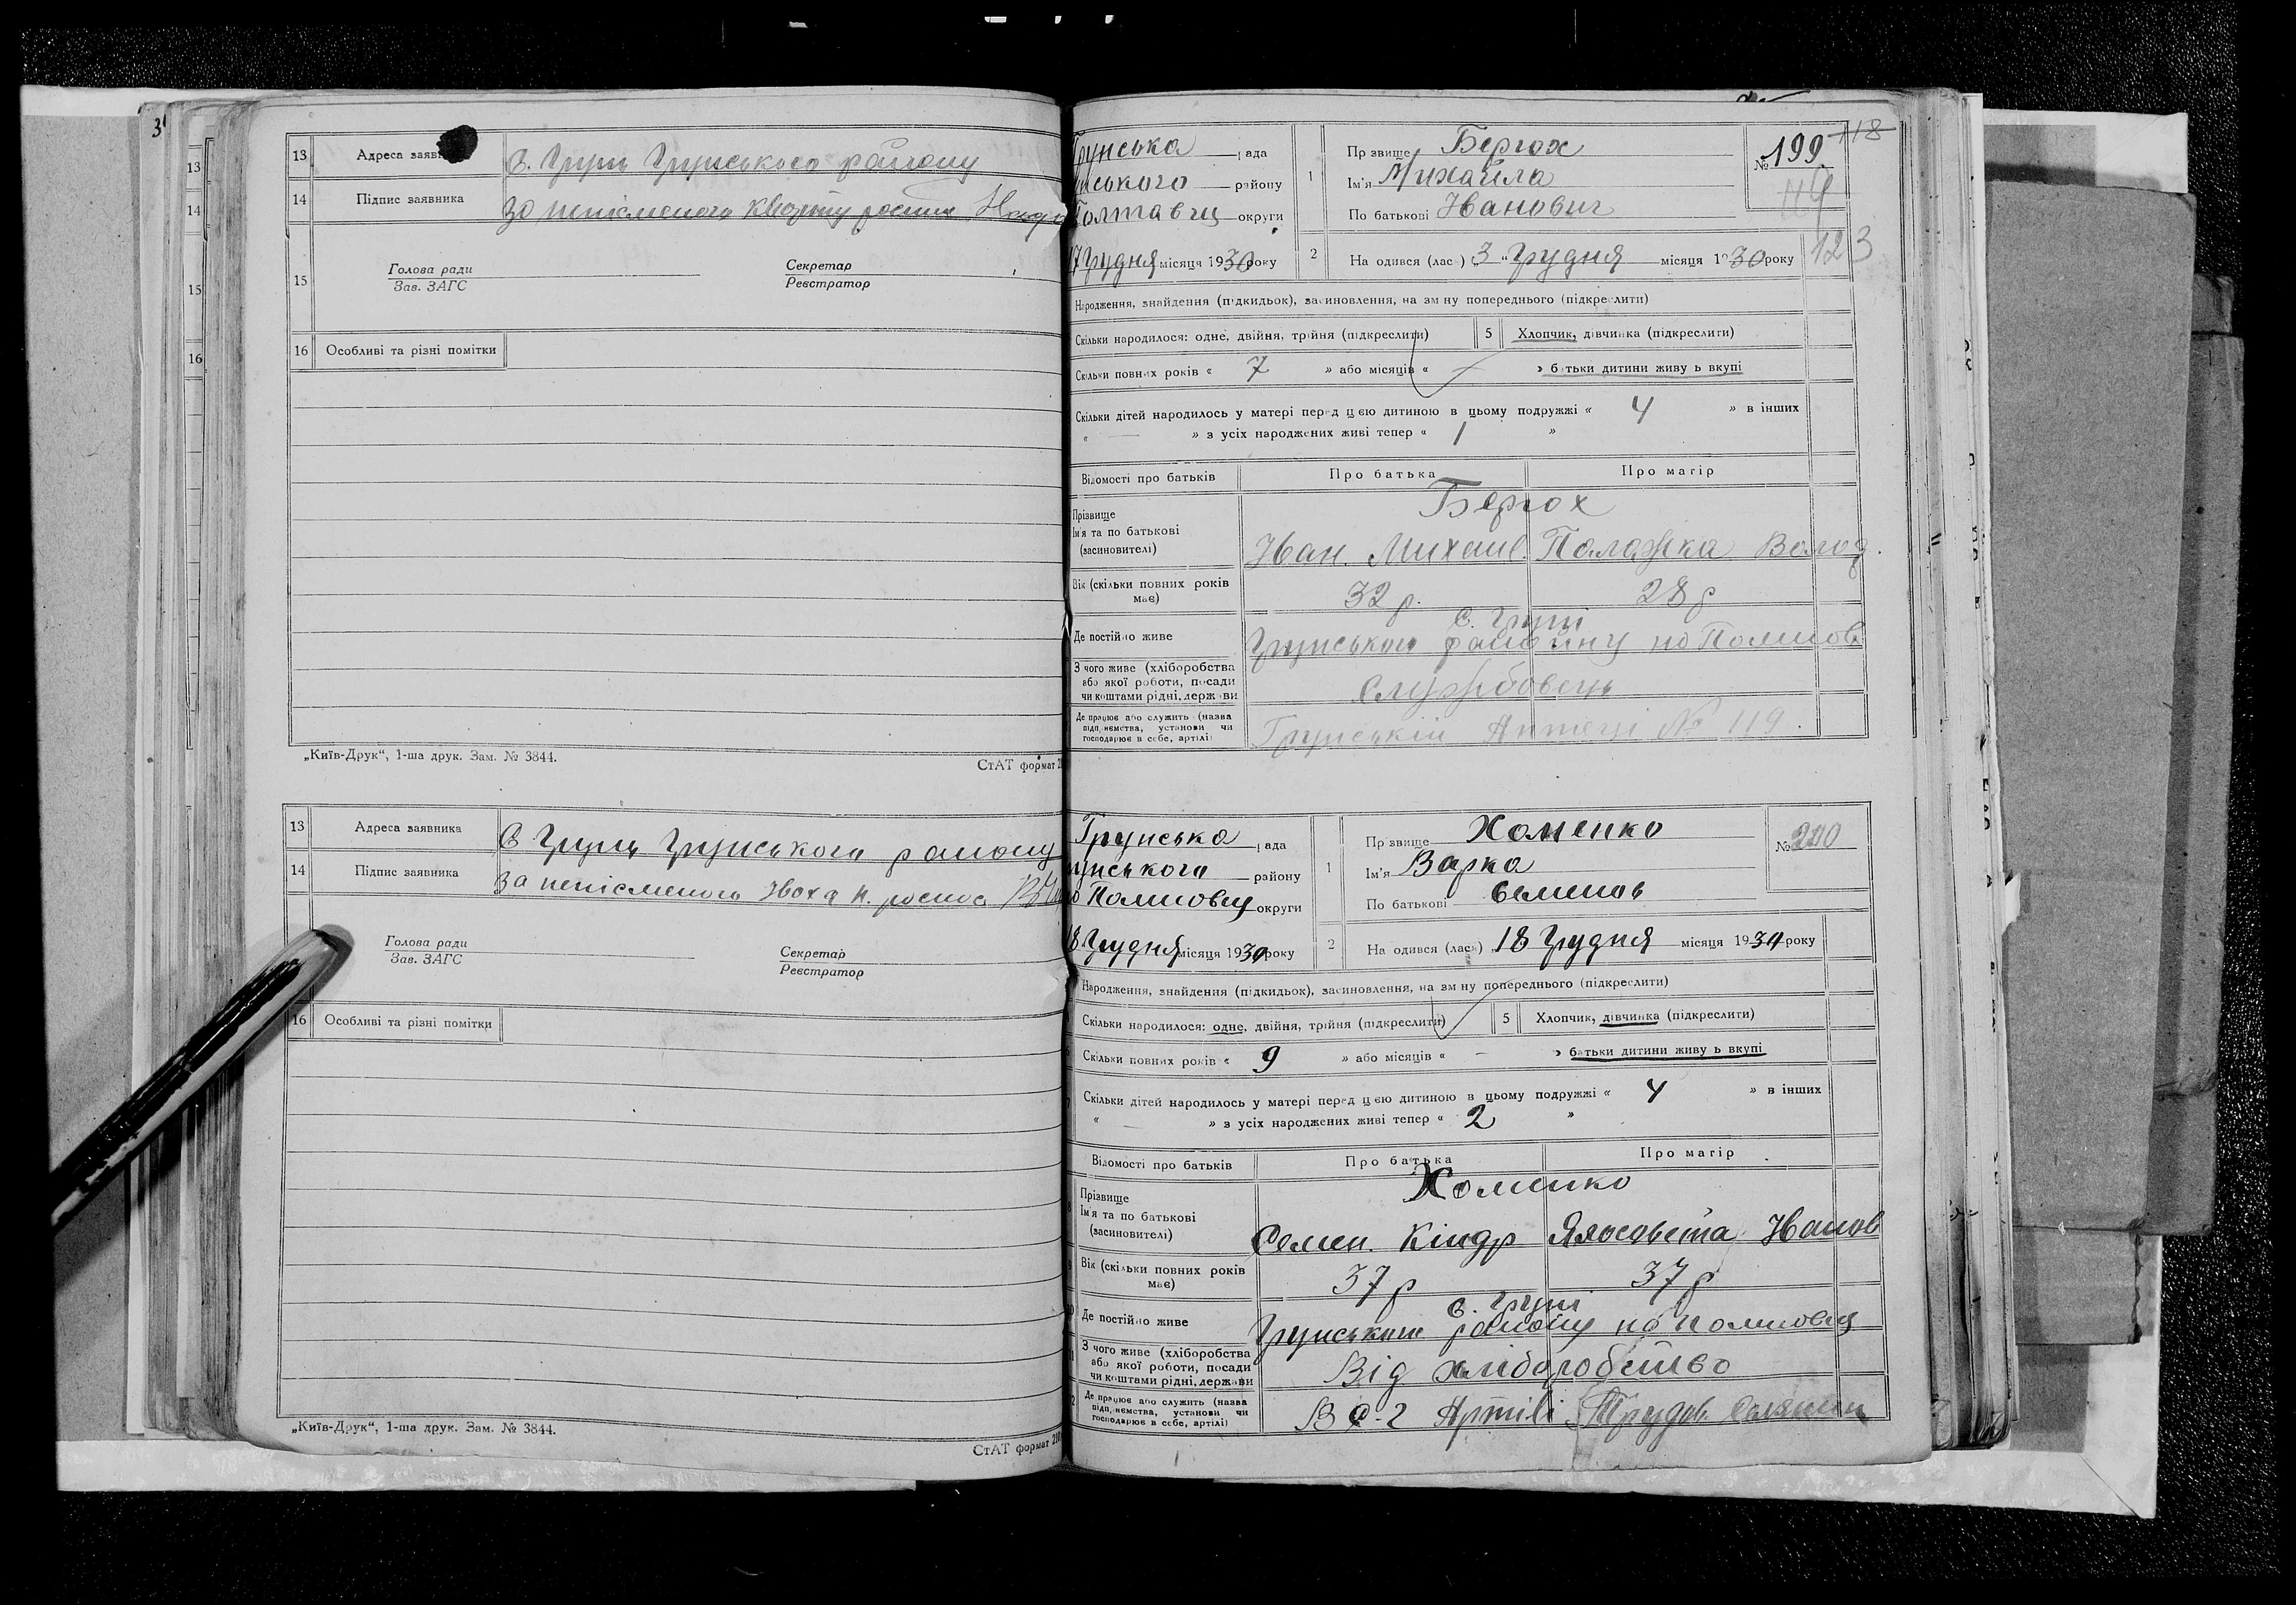 3
13 Адреса заявн
С. Грунь Грунського району
14 Підпис заявника
За неписьменого
15
Голова ради
Зав. ЗАГС
Секретар
Реєстратор
16 Особливі та різні помітки
„Київ-Друк“, 1-ша друк. Зам. № 3844.
СтАТ формат
13 Адреса заявника
С Грунь Грунського району
14 Підпис заявника
За неписьменого
Голова ради
Зав. ЗАГС
Секретар
Реєстратор
16 Особливі та різні помітки
„Київ-Друк“, 1-ша друк. Зам. № 3844.
СтАТ формат
Грунська рада
нського району
Полтавщ округи
17 Грудня місяця 1930 року
1 Пр звище Бергох
Ім'я Михайла
По батькові Іванович
№ 199
118
119
123
2 На одився (лас ) „3“ Грудня місяця 1930 року
Народження, знайдення (підкидьок), засиновлення, на зм ну попереднього (підкреслити)
Скільки народилося: одне, двійня, трійня (підкреслити) 5 Хлопчик, дівчинка (підкреслити)
Скільки повних років « 7 » або місяців « — » б тьки дитини живу ь вкупі
Скільки дітей народилось у матері перед цею дитиною в цьому подружжі « 4 » в інших
« — » з усіх народжених живі тепер « 1 »
Відомості про батьків Про батька Про матір
Прізвище
Ім'я та по батькові
(засиновителі)
Бергох
Іван. Михаил. Палажка Волод.
Вік (скільки повних років має)
32 р. 28 р
Де постійно живе
С. Груні
Грунського району
З чого живе (хліборобства або якої роботи, посади чи коштами рідні, держави
Службовець
Де працює або служить (назва підп, ємства, установи чи господарює в себе, артілі)
Грунській Аптеці № 119.
Грунська рада
унського району
округи
18 Грудня місяця 1930 року
1 Пр звище Хоменко
Ім'я Варка
По батькові Семенов
№ 200
2 На одився (лася) 18 Грудня місяця 1930 року
Народження, знайдення (підкидьок), засиновлення, на зм ну попереднього (підкреслити)
Скільки народилося: одне, двійня, трійня (підкреслити) 5 Хлопчик, дівчинка (підкреслити)
Скільки повних років « 9 » або місяців « — » батьки дитини живу ь вкупі
Скільки дітей народилось у матері перед цею дитиною в цьому подружжі « 4 » в інших
« — » з усіх народжених живі тепер « 2 »
Відомості про батьків Про батька Про матір
Прізвище
Ім'я та по батькові
(засиновителі)
Хоменко
Семен. Кіндр Іванов
Вік (скільки повних років має)
37 р 37 р
Де постійно живе
С. Груні
Грунського району
З чого живе (хліборобства або якої роботи, посади чи коштами рідні, держави
Від хліборобство
Де працює або служить (назва підп, ємства, установи чи господарює в себе, артілі)
Артілі Трудов. Селянин